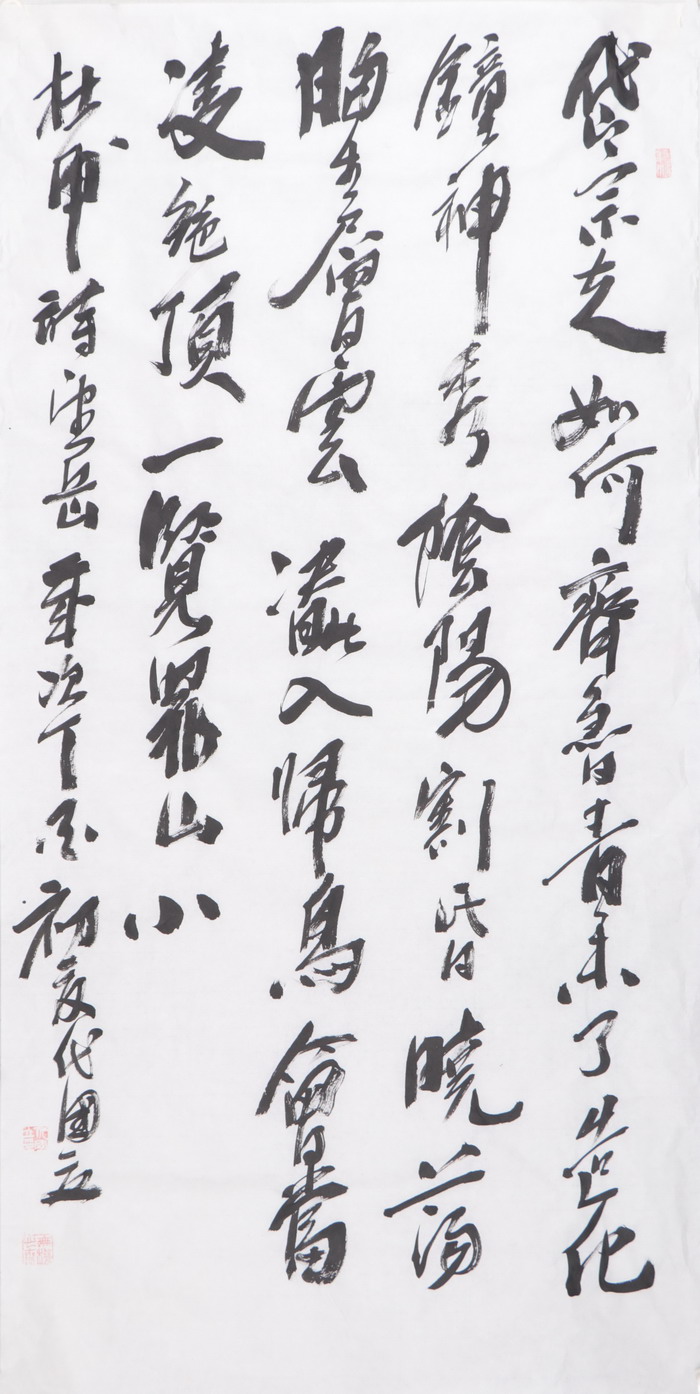 岱宗夫如何齊魯青未了造化
鐘神秀陰陽割昏曉蕩
胸生層雲決眥入歸鳥會當
凌絕頂一覽眾山小
杜甫詩望岳歲次丁酉初夏代國立